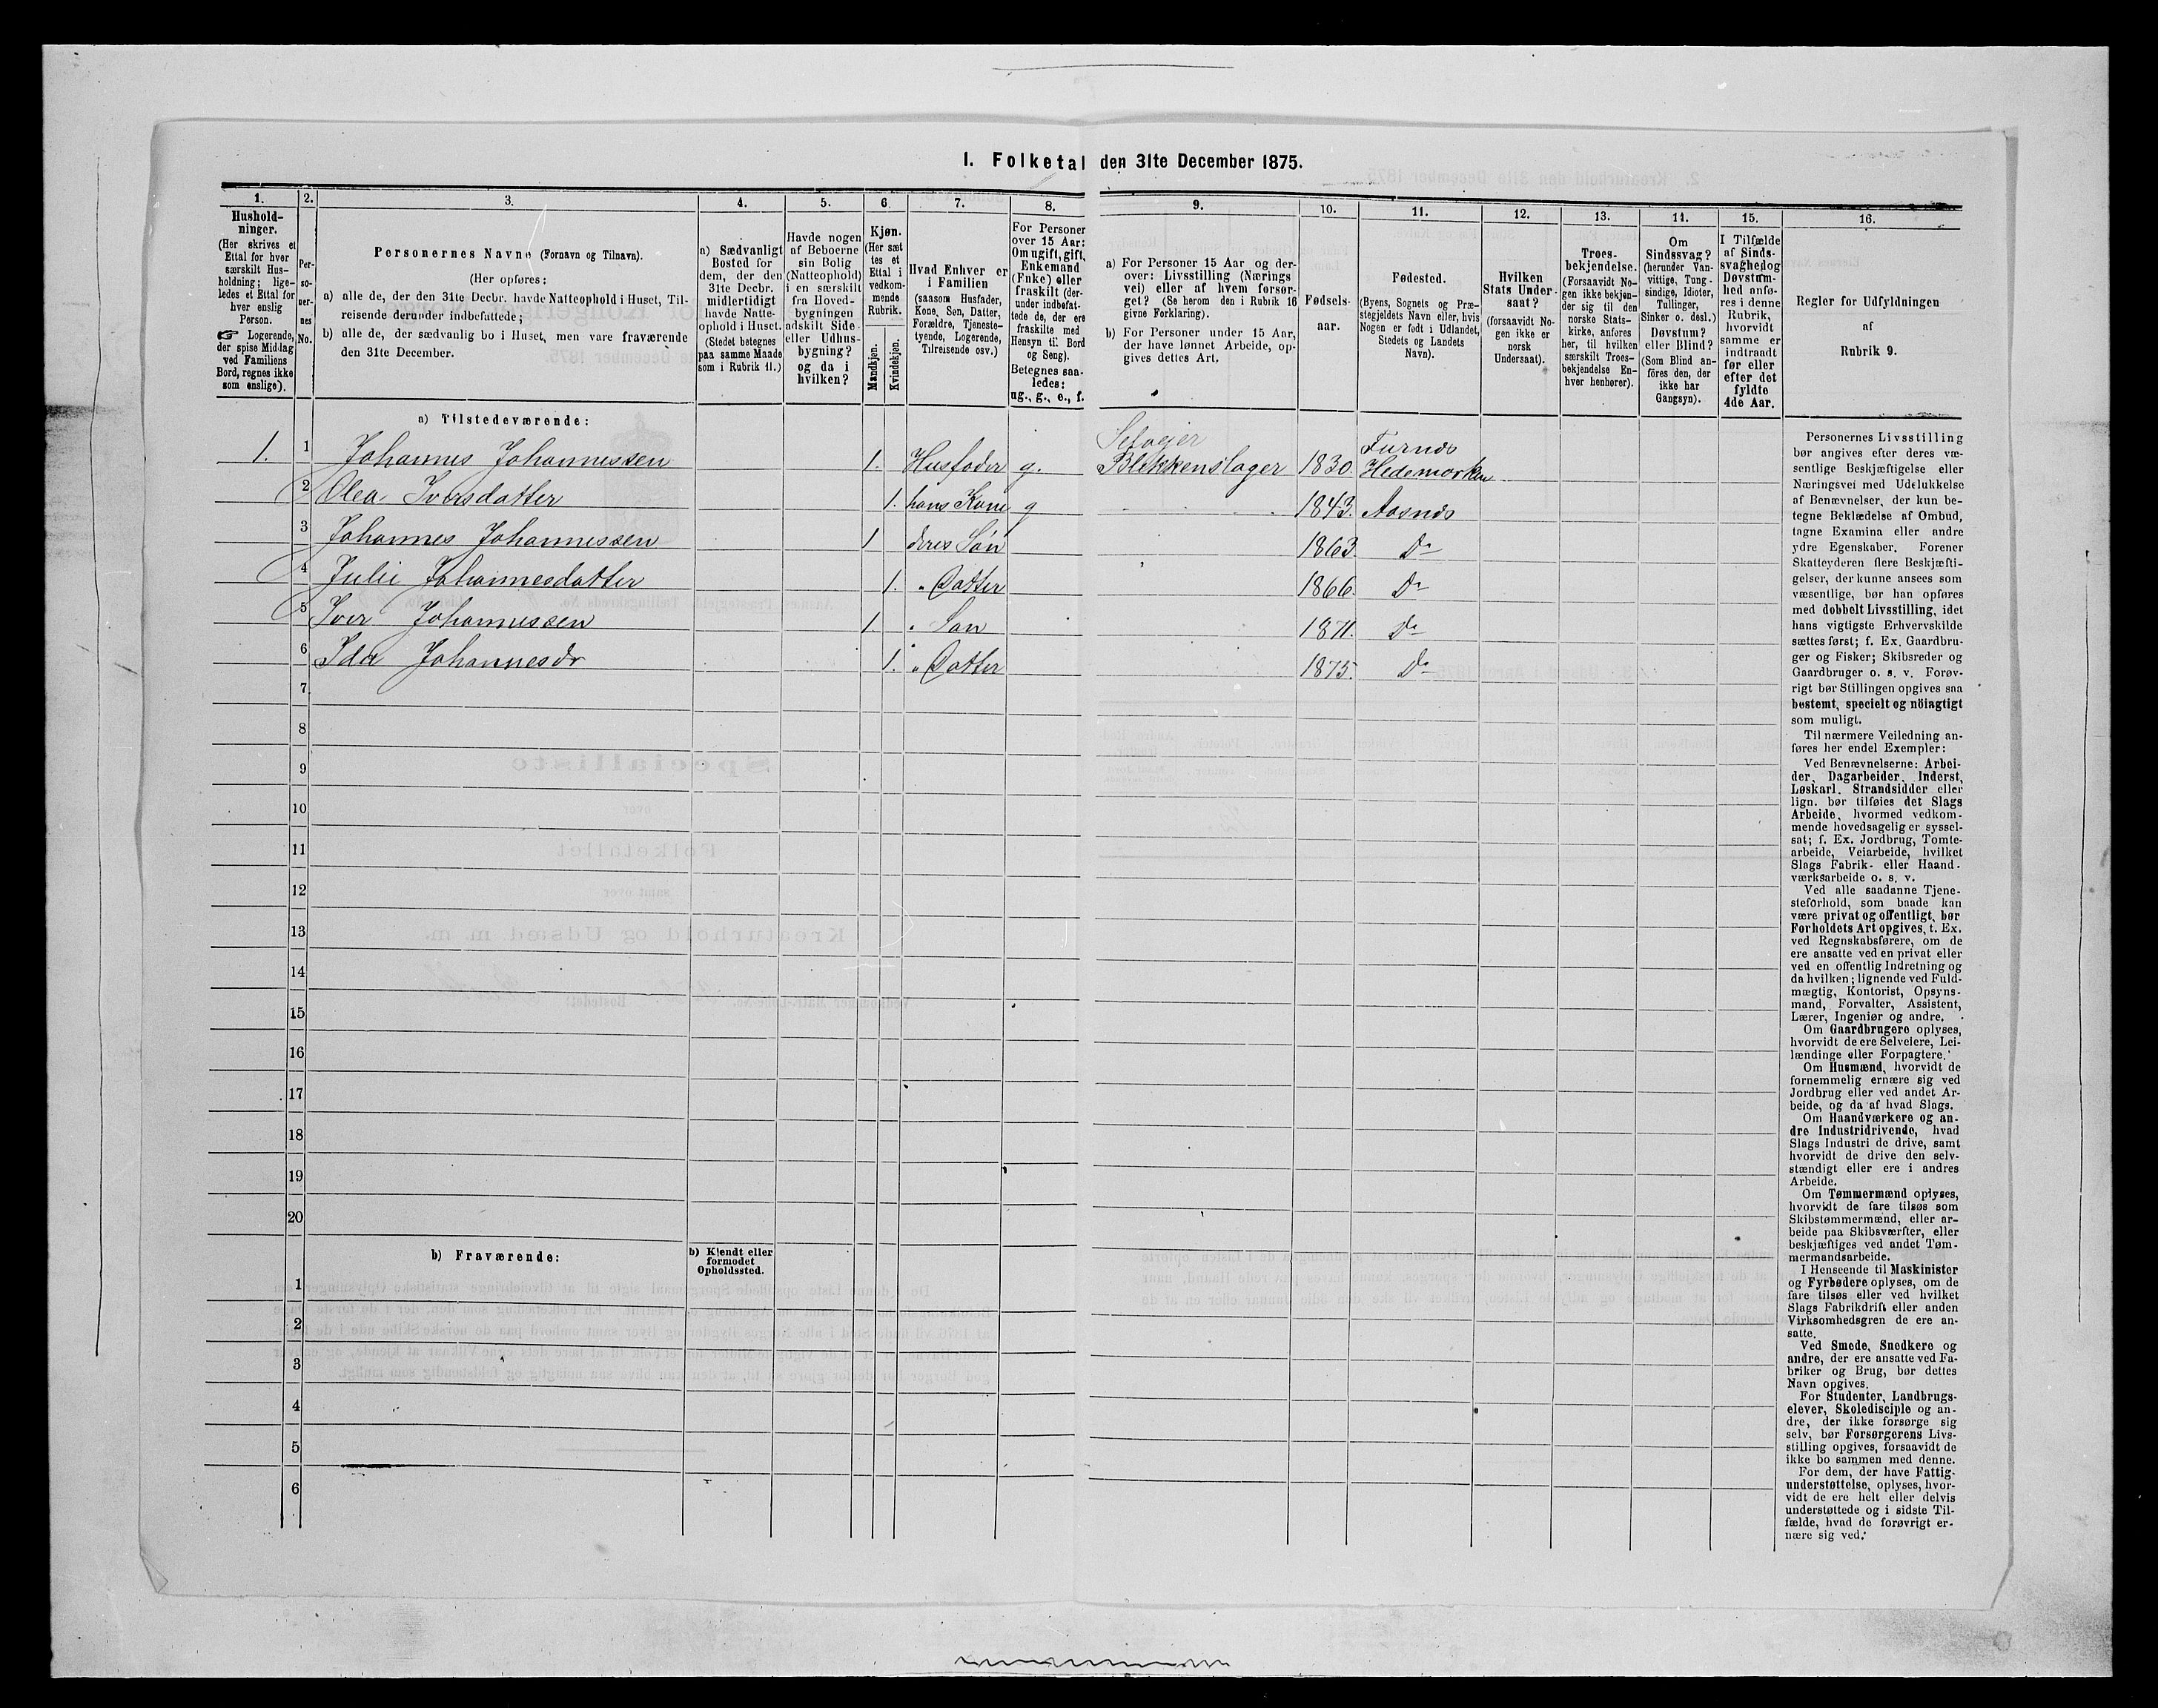 1. Folketal den 31te December 1875.
1. 2. 3. 4. 5. 6. 7. 8. 9. 10. 11. 12. 13. 14. 15. 16.
Hushold-
ninger.
(Her skrives et
Ettal for hver
særskilt Hus-
holdning; lige-
ledes et Ettal for
hver enslig
Person.
☞ Logerende,
der spise Middag
ved Familiens
Bord, regnes ikke
som enslige).
Per-
so-
ner-
nes
No.
Personernes Navne (Fornavn og Tilnavn).
(Her opføres:
a) alle de, der den 31te Decbr. havde Natteophold i Huset, Til-
reisende derunder indbefattede;
b) alle de, der sædvanlig bo i Huset, men vare fraværende
den 31te December.
a) Sædvanligt
Bosted for
dem, der den
31te Decbr.
midlertidigt
havde Natte-
ophold i Huset.
(Stedet betegnes
paa samme Maade
som i Rubrik 11.)
Havde nogen
af Beboerne
sin Bolig
(Natteophold)
i en særskilt
fra Hoved-
bygningen
adskilt Side-
eller Udhus-
bygning?
og da i
hvilken?
Kjøn.
(Her sæt
tes et
Ettal i
vedkom-
mende
Rubrik.
Mandkjøn.
Kvindekjøn.
Hvad Enhver er
i Familien
(saasom Husfader,
Kone, Søn, Datter,
Forældre, Tjeneste-
tyende, Logerende,
Tilreisende osv.)
For Personer
over 15 Aar:
Om ugift, gift,
Enkemand
(Enke) eller
fraskilt (der-
under indbefat-
tede de, der ere
fraskilte med
Hensyn til Bord
og Seng).
Betegnes saa-
ledes:
ug., g., e., f.
a) For Personer 15 Aar og der-
over: Livsstilling (Nærings
vei) eller af hvem forsør-
get? (Se herom den i Rubrik 16
givne Forklaring).
b) For Personer under 15 Aar,
der have lønnet Arbeide, op-
gives dettes Art.
Fødsels-
aar.
Fødested.
(Byens, Sognets og Præ-
stegjeldets Navn eller, hvis
Nogen er født i Udlandet,
Stedets og Landets
Navn).
Hvilken
Stats Under-
saat?
(forsaavidt No-
gen ikke er
norsk
Undersaat).
Troes-
bekjendelse.
(Forsaavidt No-
gen ikke bekjen-
der sig til den
norske Stats-
kirke, anføres
her, til hvilken
særskilt Troes-
bekjendelse En-
hver henhører).
Om
Sindssvag?
(herunder Van-
vittige, Tung-
sindige, Idioter,
Tullinger,
Sinker o. desl.)
Døvstum?
eller Blind?
(Som Blind an-
føres den, der
ikke har
Gangsyn).
I Tilfælde
af Sinds-
svaghed og
Døvstum-
hed anfø-
res i denne
Rubrik,
hvorvidt
samme er
indtraadt
før eller
efter det
fyldte
4de Aar.
Regler for Udfyldningen
af
Rubrik 9.
a) Tilstedeværende:
Selveier
1. 1 Johannes Johannessen 1. Husfader g. Blikkenslager 1830. Furnds Hedemarken
2 Olea Iversdatter 1. hans Kone g 1843. Aasnds
3 Johannes Johannessen 1 deres Søn 1863. Do
4 Julie Johannesdatter 1. " Datter 1866. Do
5 Iver Johannessen 1. " Søn 1871. Do
6 Ida Johannesdr 1. " Datter 1875. Do
7
8
9
10
11
12
13
14
15
16
17
18
19
20
b) Fraværende:
b) Kjendt eller
formodet
Opholdssted.
1
2
3
4
5
6
Personernes Livsstilling
bør angives efter deres væ-
sentlige Beskjæftigelse eller
Næringsvei med Udelukkelse
af Benævnelser, der kun be-
tegne Beklædelse af Ombud,
tagne Examina eller andre
ydre Egenskaber. Forener
Skatteyderen flere Beskjæfti-
gelser, der kunne ansees som
væsentlige, bør han opføres
med dobbelt Livsstilling, idet
hans vigtigste Erhvervskilde
sættes først; f. Ex. Gaardbru-
ger og Fisker; Skibsreder og
Gaardbruger o. s. v. Forøv-
rigt bør Stillingen opgives saa
bestemt, specielt og nöiagtigt
som muligt.
Til nærmere Veiledning an-
føres her endel Exempler:
Ved Benævnelserne: Arbei-
der, Dagarbeider, Inderst,
Løskarl, Strandsidder eller
lign. bør tilføies det Slags
Arbeide, hvormed vedkom-
mende hovedsagelig er syssel-
sat; f. Ex. Jordbrug, Tomte-
arbeide, Veiarbeide, hvilket
Slags Fabrik- eller Haand-
værksarbeide o. s. v.
Ved alle saadanne Tjene-
steforhold, som baade kan
være privat og offentligt, bør
Forholdets Art opgives, t. Ex.
ved Regnskabsførere, om de
ere ansatte ved en privat eller
ved en offentlig Indretning og
da hvilken; lignende ved Fuld-
mægtig, Kontorist, Opsyns-
mand, Forvalter, Assistent,
Lærer, Ingeniør og andre.
Om Gaardbrugere oplyses,
hvorvidt de ere Selveiere, Lei-
lændinge eller Forpagtere.
Om Husmænd, hvorvidt de
fornemmelig ernære sig ved
Jordbrug eller ved andet Ar-
beide, og da af hvad Slags.
Om Haandværkere og an-
dre Industridrivende, hvad
Slags Industri de drive, samt
hvorvidt de drive den selv-
stændigt eller ere i andres
Arbeide.
Om Tømmermænd oplyses,
hvorvidt de fare tilsøs som
Skibstømmermænd, eller ar-
beide paa Skibsværfter, eller
beskjæftiges ved andet Tøm-
mermandsarbeide.
I Henseende til Maskinister
og Fyrbødere oplyses, om de
fare tilsøs eller ved hvilket
Slags Fabrikdrift eller anden
Virksomhedsgren de ere an-
satte.
Ved Smede, Snedkere og
andre, der ere ansatte ved Fa-
briker og Brug, bør dettes
Navn opgives.
For Studenter, Landbrugs-
elever, Skoledisciple og an-
dre, der ikke forsørge sig
selv, bør Forsørgerens Livs-
stilling opgives, forsaavidt de
ikke bo sammen med denne.
For dem, der have Fattig-
understøttelse, oplyses, hvor-
vidt de ere helt eller delvis
understøttede og i sidste Til-
fælde, hvad de forøvrigt er-
nære sig ved.